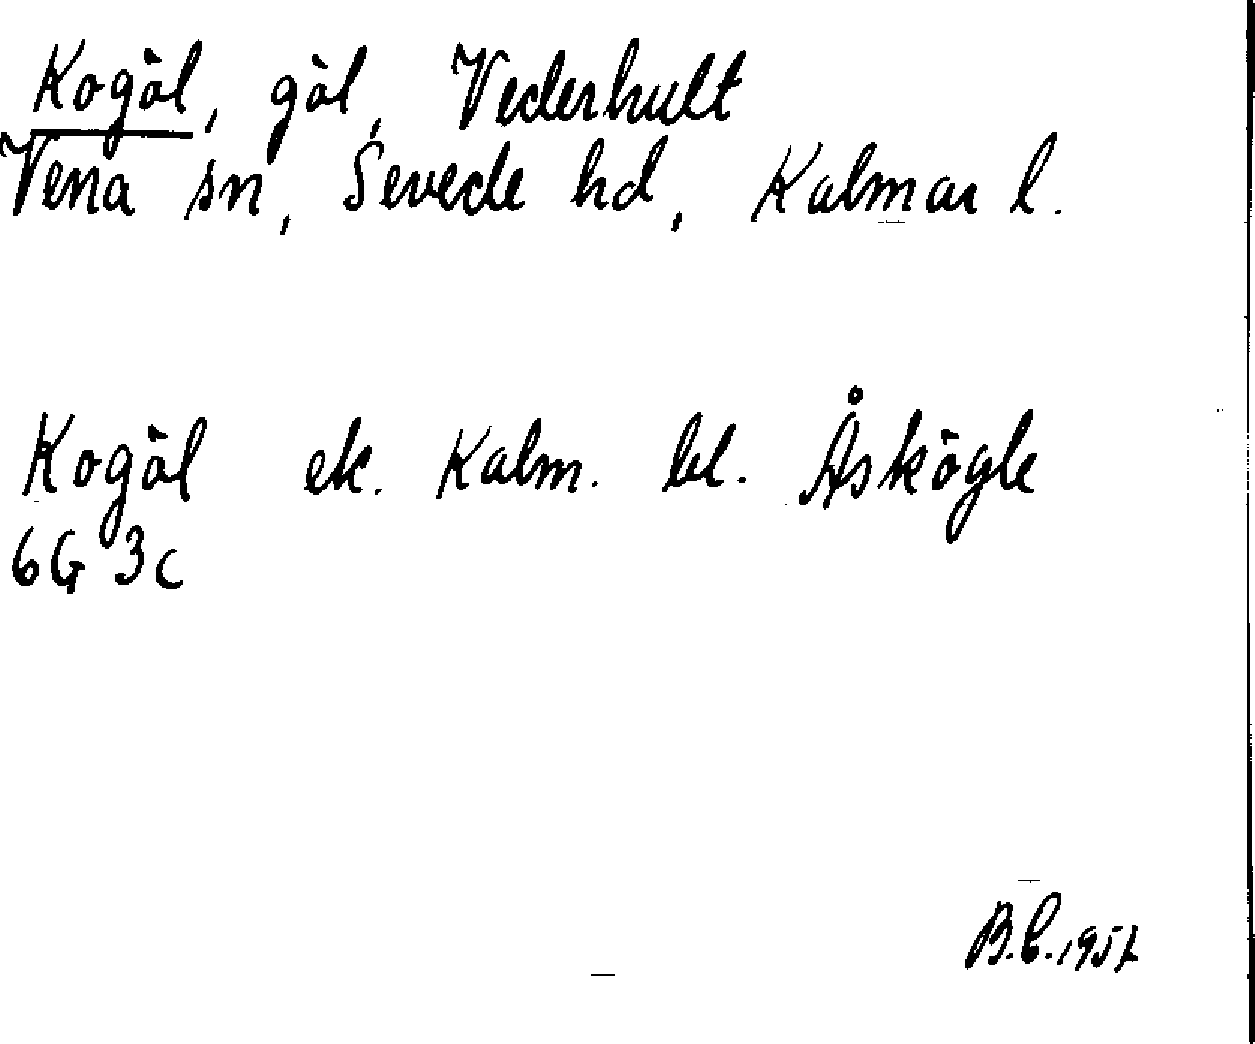 Kogöl, göl, Vederhult
Vena sn, Sevede hd, Kalmar l.
Kogöl ek. Kalm. bl. Åskögle
6G 3c